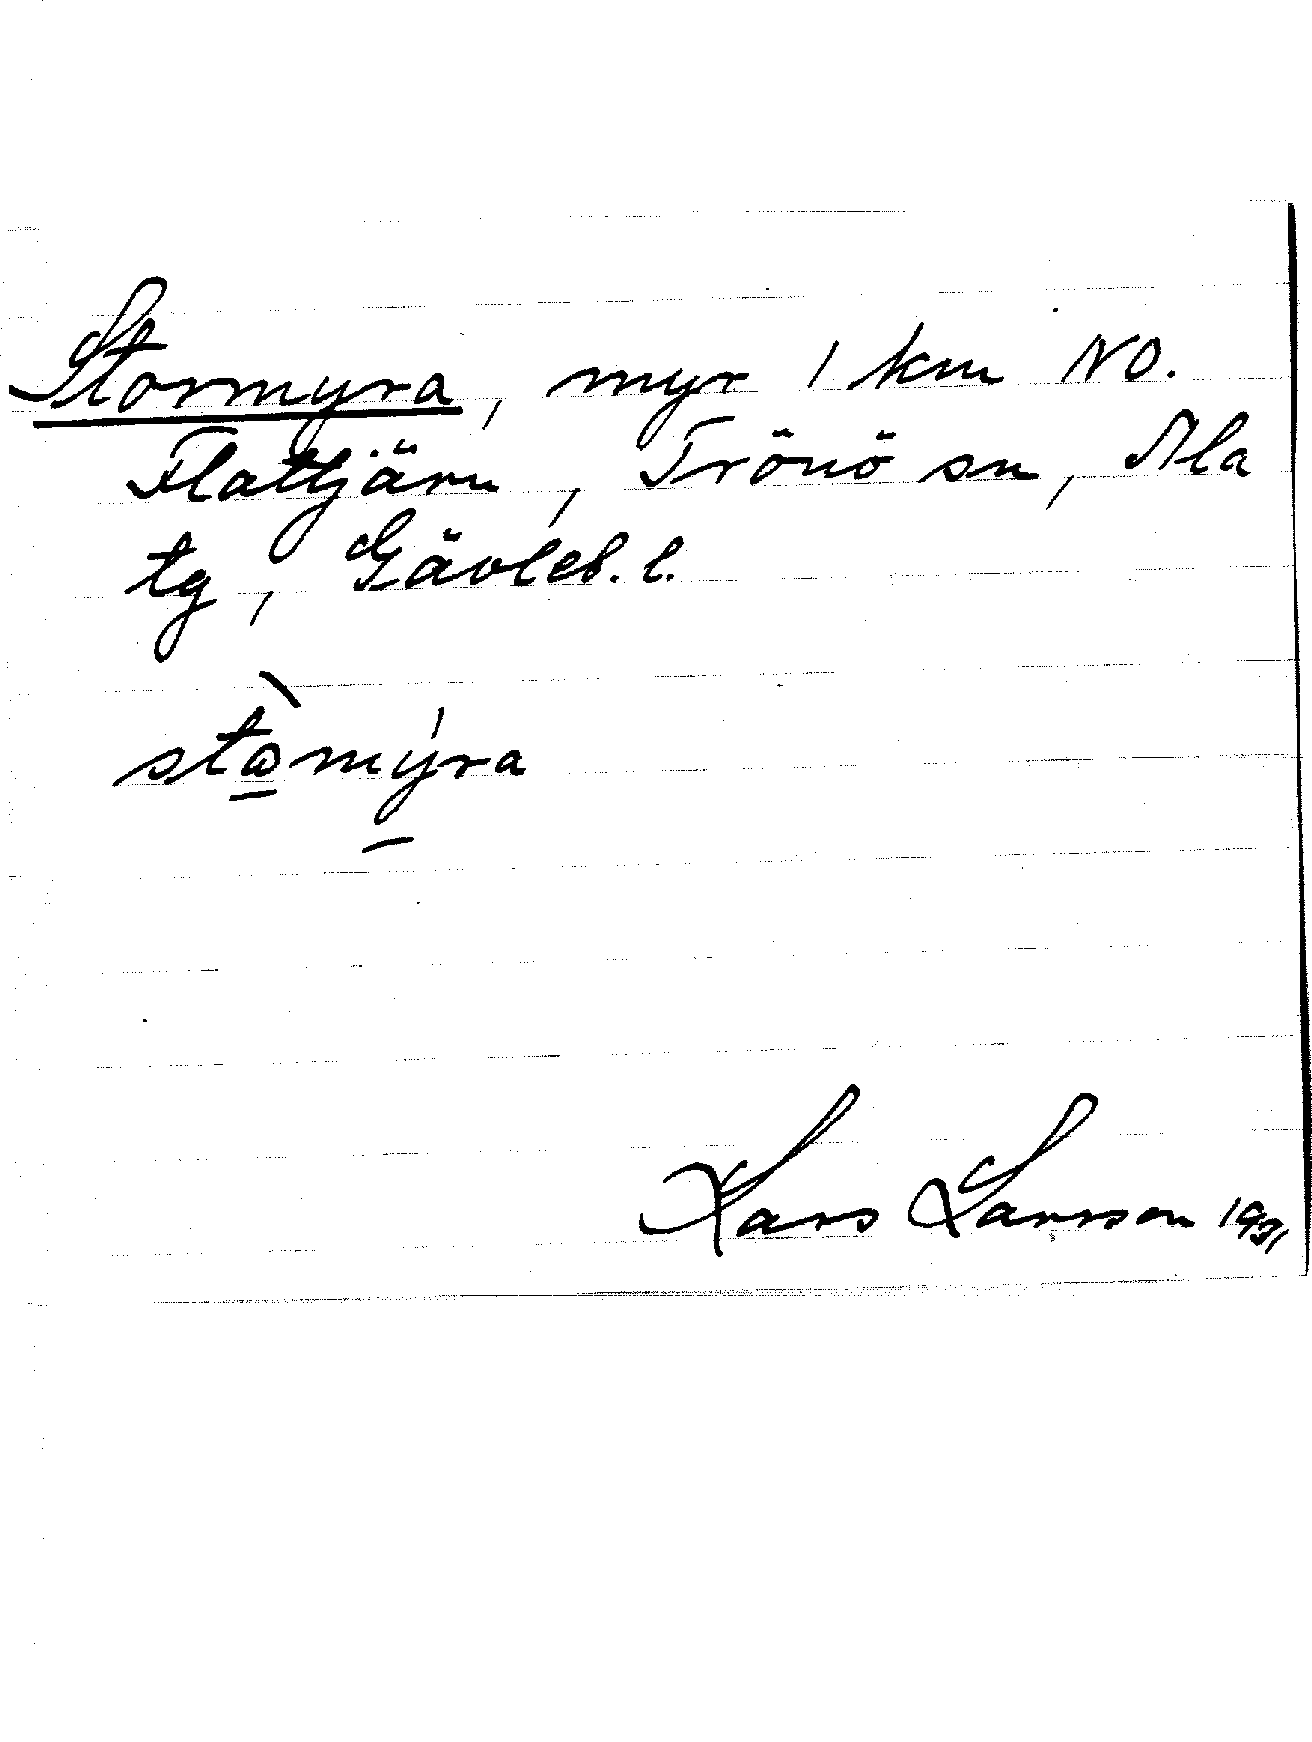 Stormyra, myr 1 km NO.
Flattjärn, Trönö sn, Ala
tg, Gävleb. l.
stòmýra
Lars Larsson 1931